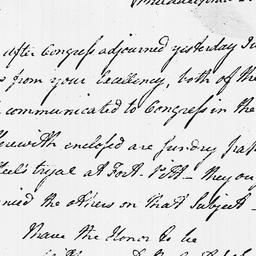 after Congress adjourned yesterday
from your Excellency, both of the
communicated to Congress in the
herewith enclosed are sundry
tryal at Fort Pitt — they
the others on that Subject —
I have the Honor to be